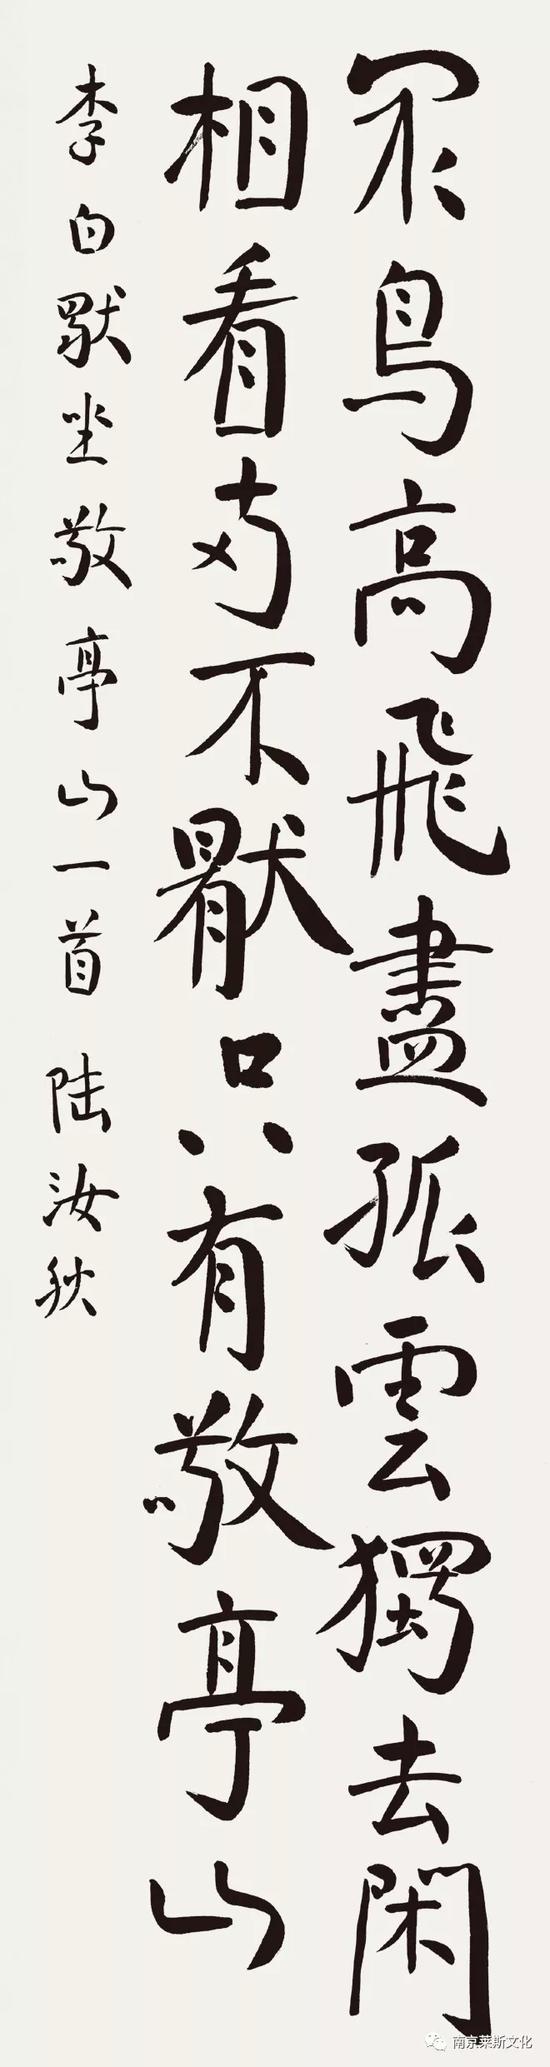 众鸟高飛盡孤雲獨去閑
相看两不厭只有敬亭山
李白獨坐敬亭山一首 陆汝秋
南京莱斯文化